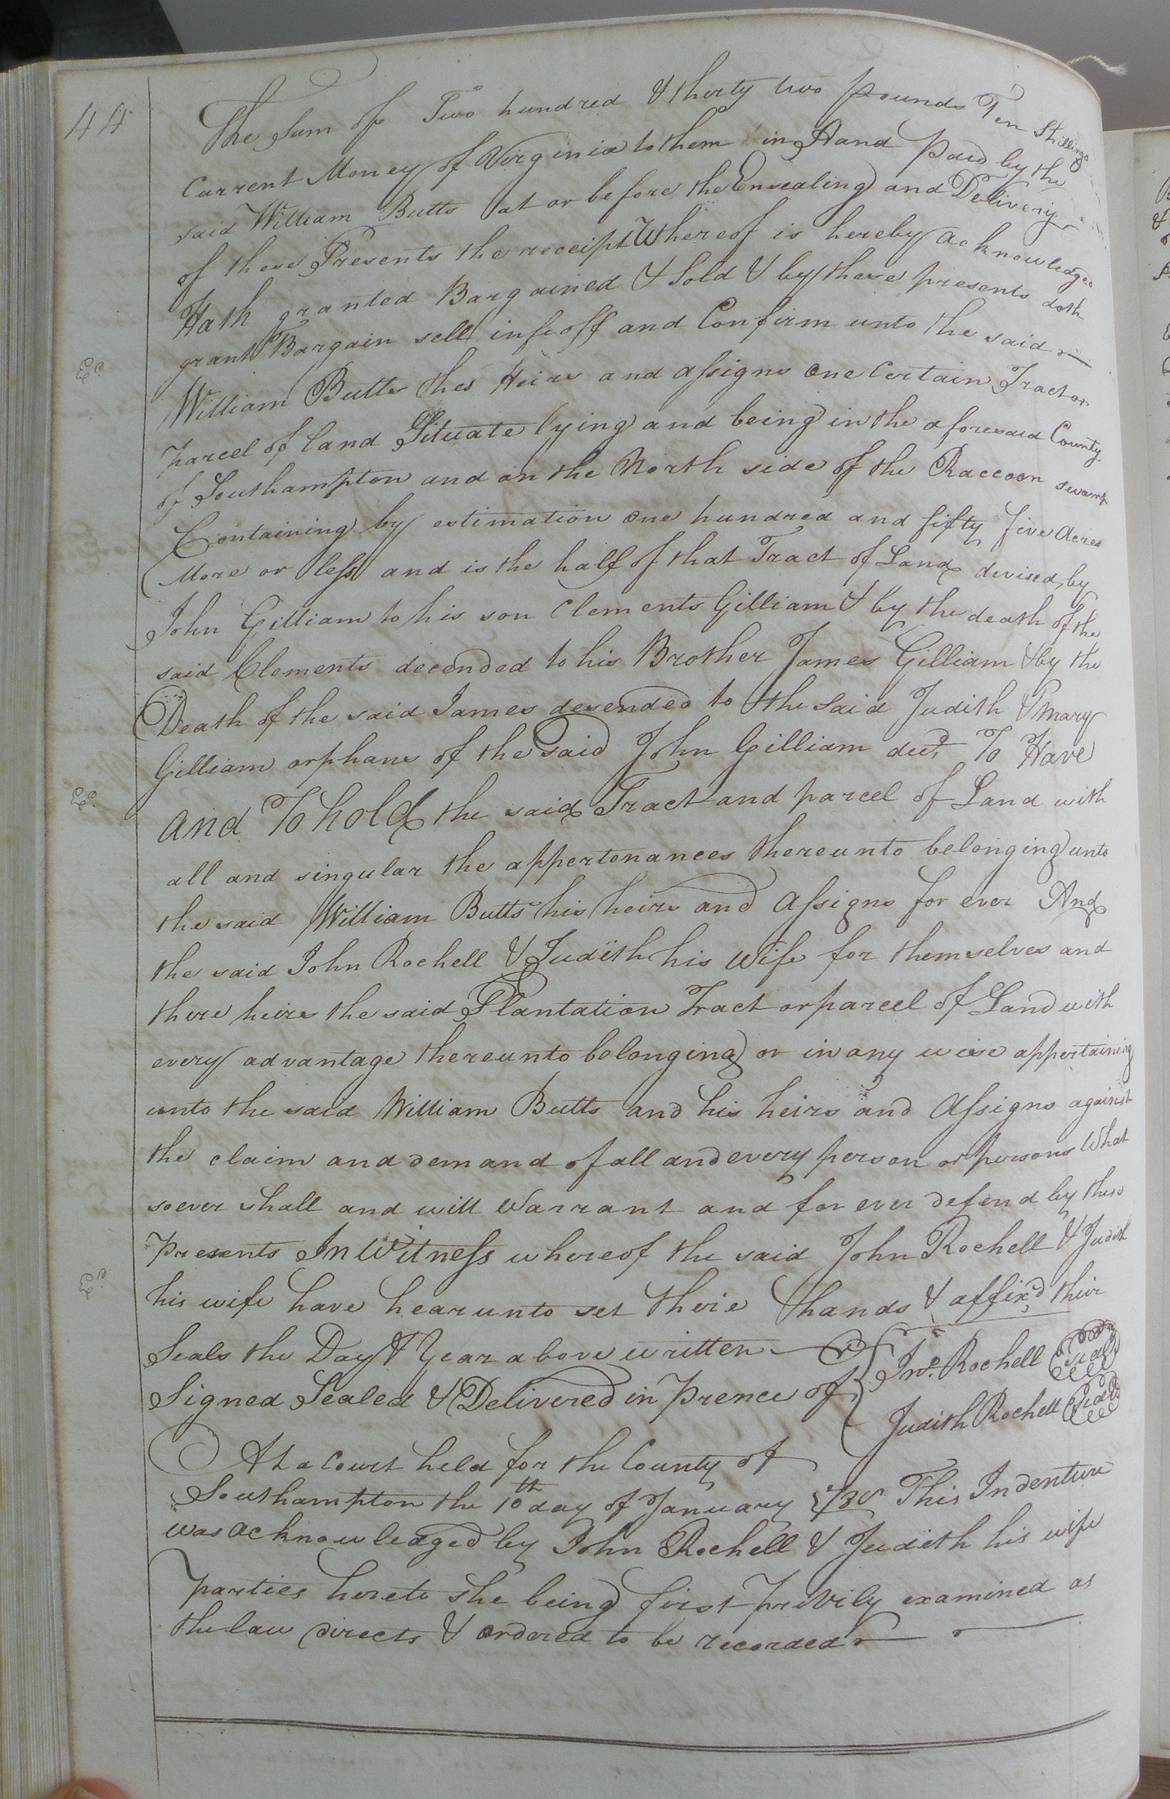 44
The Sum of Two hundred & thirty two pounds Ten Shillings
Current Money of Virginia to them in Hand paid by the
said William Butts at or before the Ensealing and Delivery
of these Presents the receipt Whereof is hereby acknowledged
Hath granted Bargained & Sold & by these presents doth
grant Bargain sell infeoff and Confirm unto the said
William Butts hes Heirs and assigns one Certain Tract or
parcel of land Situate lying and being in the aforesaid County
of Southampton and on the North side of the Raccoon swamp
Containing by estimation one hundred and fifty five Acres
More or less and is the half of that Tract of Land devised by
John Gilliam to his son Clements Gilliam & by the death of the
said Clements decended to his Brother James Gilliam & by the
Death of the said James desended to the said Judith & Mary
Gilliam orphans of the said John Gilliam decd. To Have
and To hold the said Tract and parcel of Land with
all and singular the appertonances thereunto belonging unto
the said William Butts his heirs and assigns for ever And
the said John Rochell & Judith his Wife for themselves and
there heirs the said Plantation Tract or parcel of Land with
every advantage thereunto belonging or in any wise appertaining
unto the said William Butts and his heirs and Assigns against
the claim and demand of all and every person or persons What
soever shall and will Warrant and for ever defend by these
presents In Witness whereof the said John Rochell & Judith
his wife have hearunto set their hands & affixd their
Seals the Day & Year above written
Jno. Rochell Seal
Signed Sealed & Delivered in prence of
Judith Rochell Seal
At a Court held for the County of
Southampton the 10th day of January This Indenture
was acknowledged by John Rochell & Judith his wife
parties hereto she being first privily examined as
the law directs & ordered to be recorded